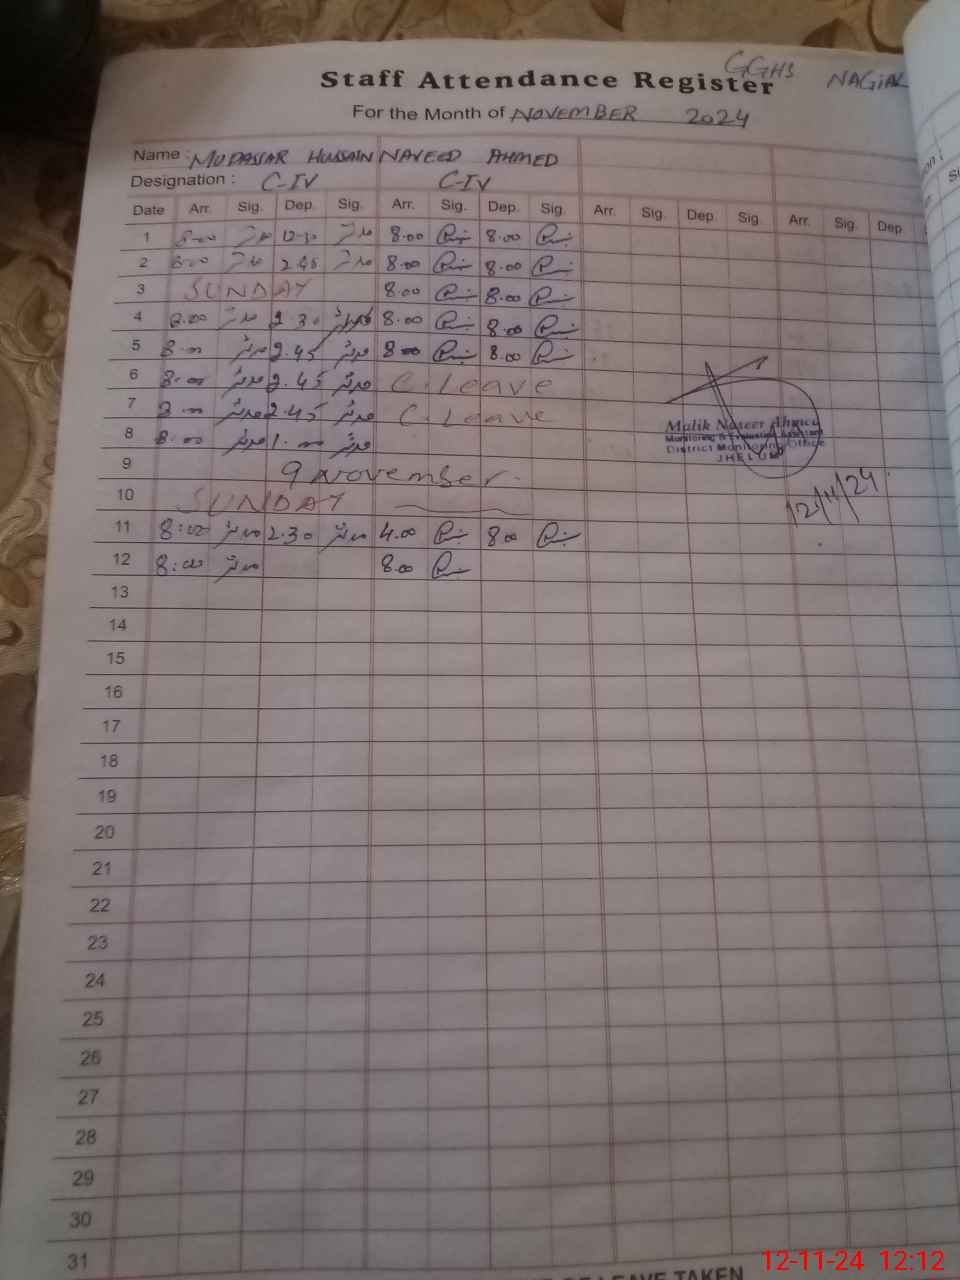 GGHS NAGIAL
Staff Attendance Register
For the Month of NOVEMBER 2024
Name : MUDASSAR HUSSAIN NAVEED AHMED
Designation : C-IV C-IV
Date Arr. Sig. Dep. Sig. Arr. Sig. Dep. Sig. Arr. Sig. Dep. Sig. Arr. Sig. Dep.
1 8-00 مدثر 12-30 مدثر 8.00 8.00
2 8-00 مدثر 2.45 مدثر 8.00 8.00
3 SUNDAY 8.00 8.00
4 8.00 مدثر 2.30 مدثر 8.00 8.00
5 8.00 مدثر 2.45 مدثر 8.00 8.00
6 8.00 مدثر 2.45 مدثر C. Leave
7 8.00 مدثر 2.45 مدثر C. Leave
8 8.00 مدثر 1.00 مدثر
9 9 November.
10 SUNDAY
11 8:00 مدثر 2.30 مدثر 4.00 8.00
12 8:00 مدثر 8.00
Malik Naseer Ahmed
Monitoring & Evaluation Assistant
District Monitoring Office
JHELUM
12/11/24
13
14
15
16
17
18
19
20
21
22
23
24
25
26
27
28
29
30
31
OF LEAVE TAKEN
12-11-24 12:12